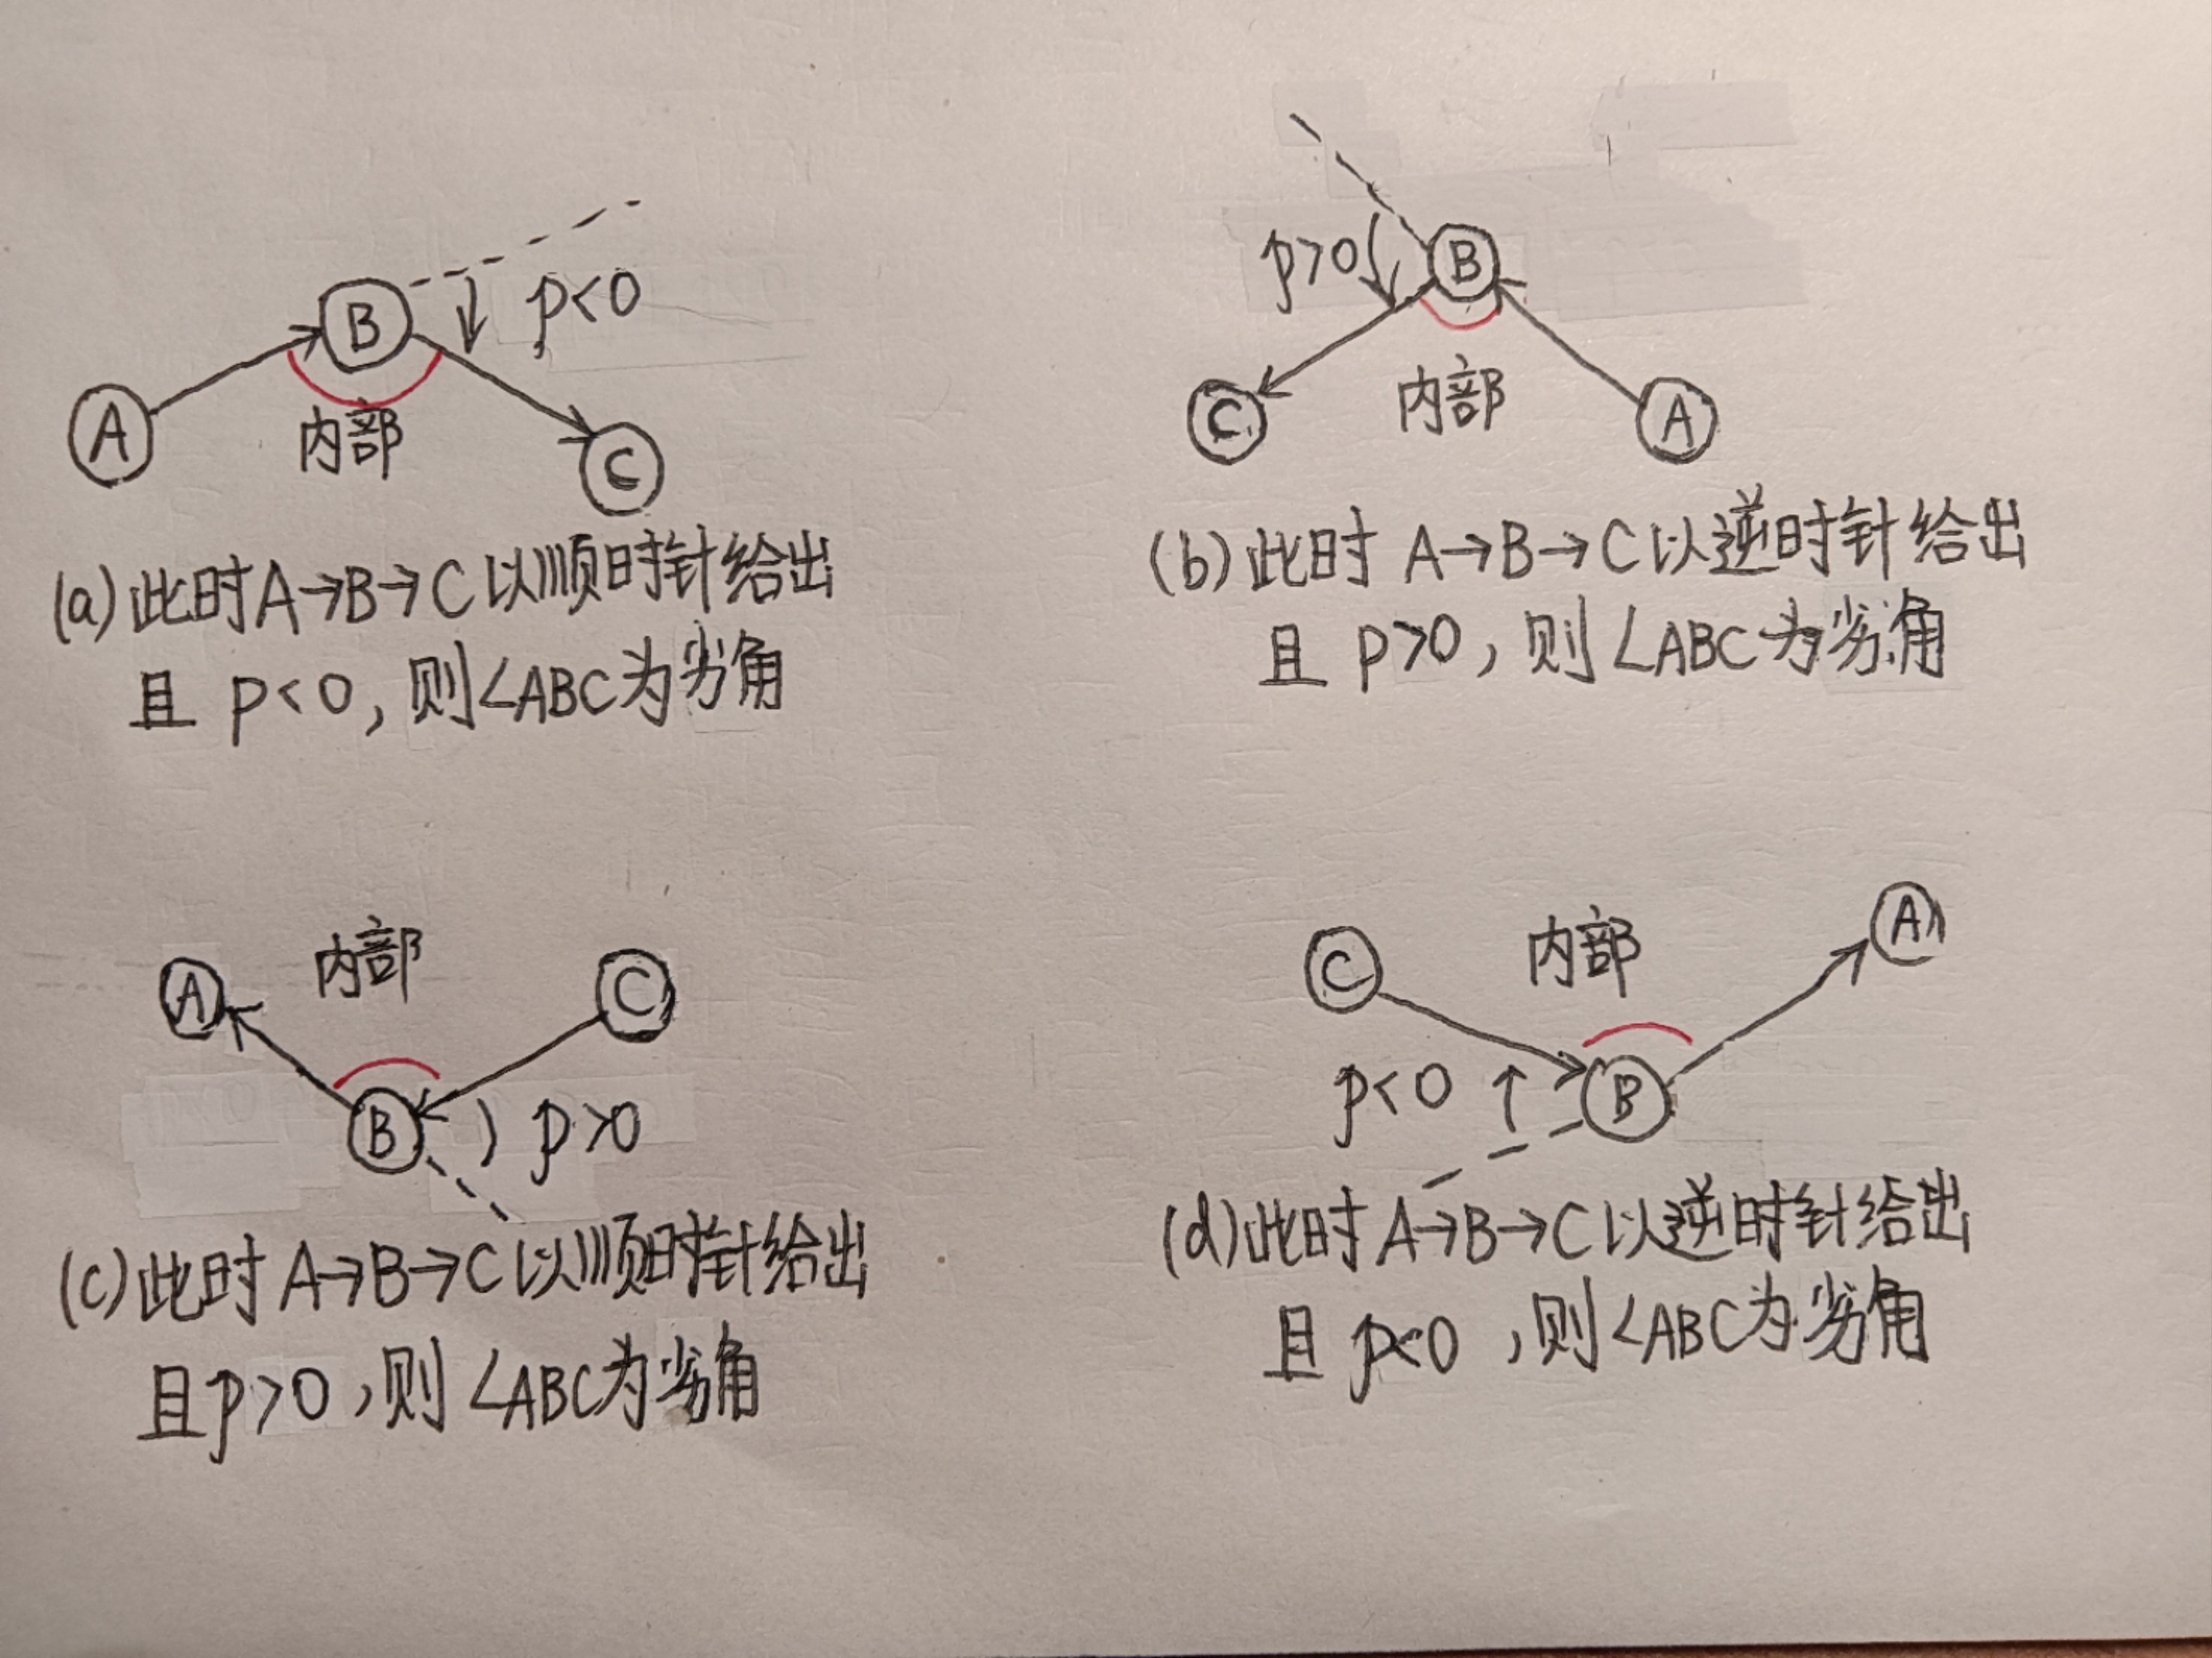 B
p<0
A
内部
C
(a)此时A→B→C以顺时针给出
且 p<0,则∠ABC为劣角
p>0
B
C
内部
A
(b)此时 A→B→C以逆时针给出
且 p>0,则∠ABC为劣角
A
内部
C
B
p>0
(c)此时 A→B→C以顺时针给出
且p>0,则∠ABC为劣角
C
内部
A
p<0
B
(d)此时A→B→C以逆时针给出
且 p<0,则∠ABC为劣角